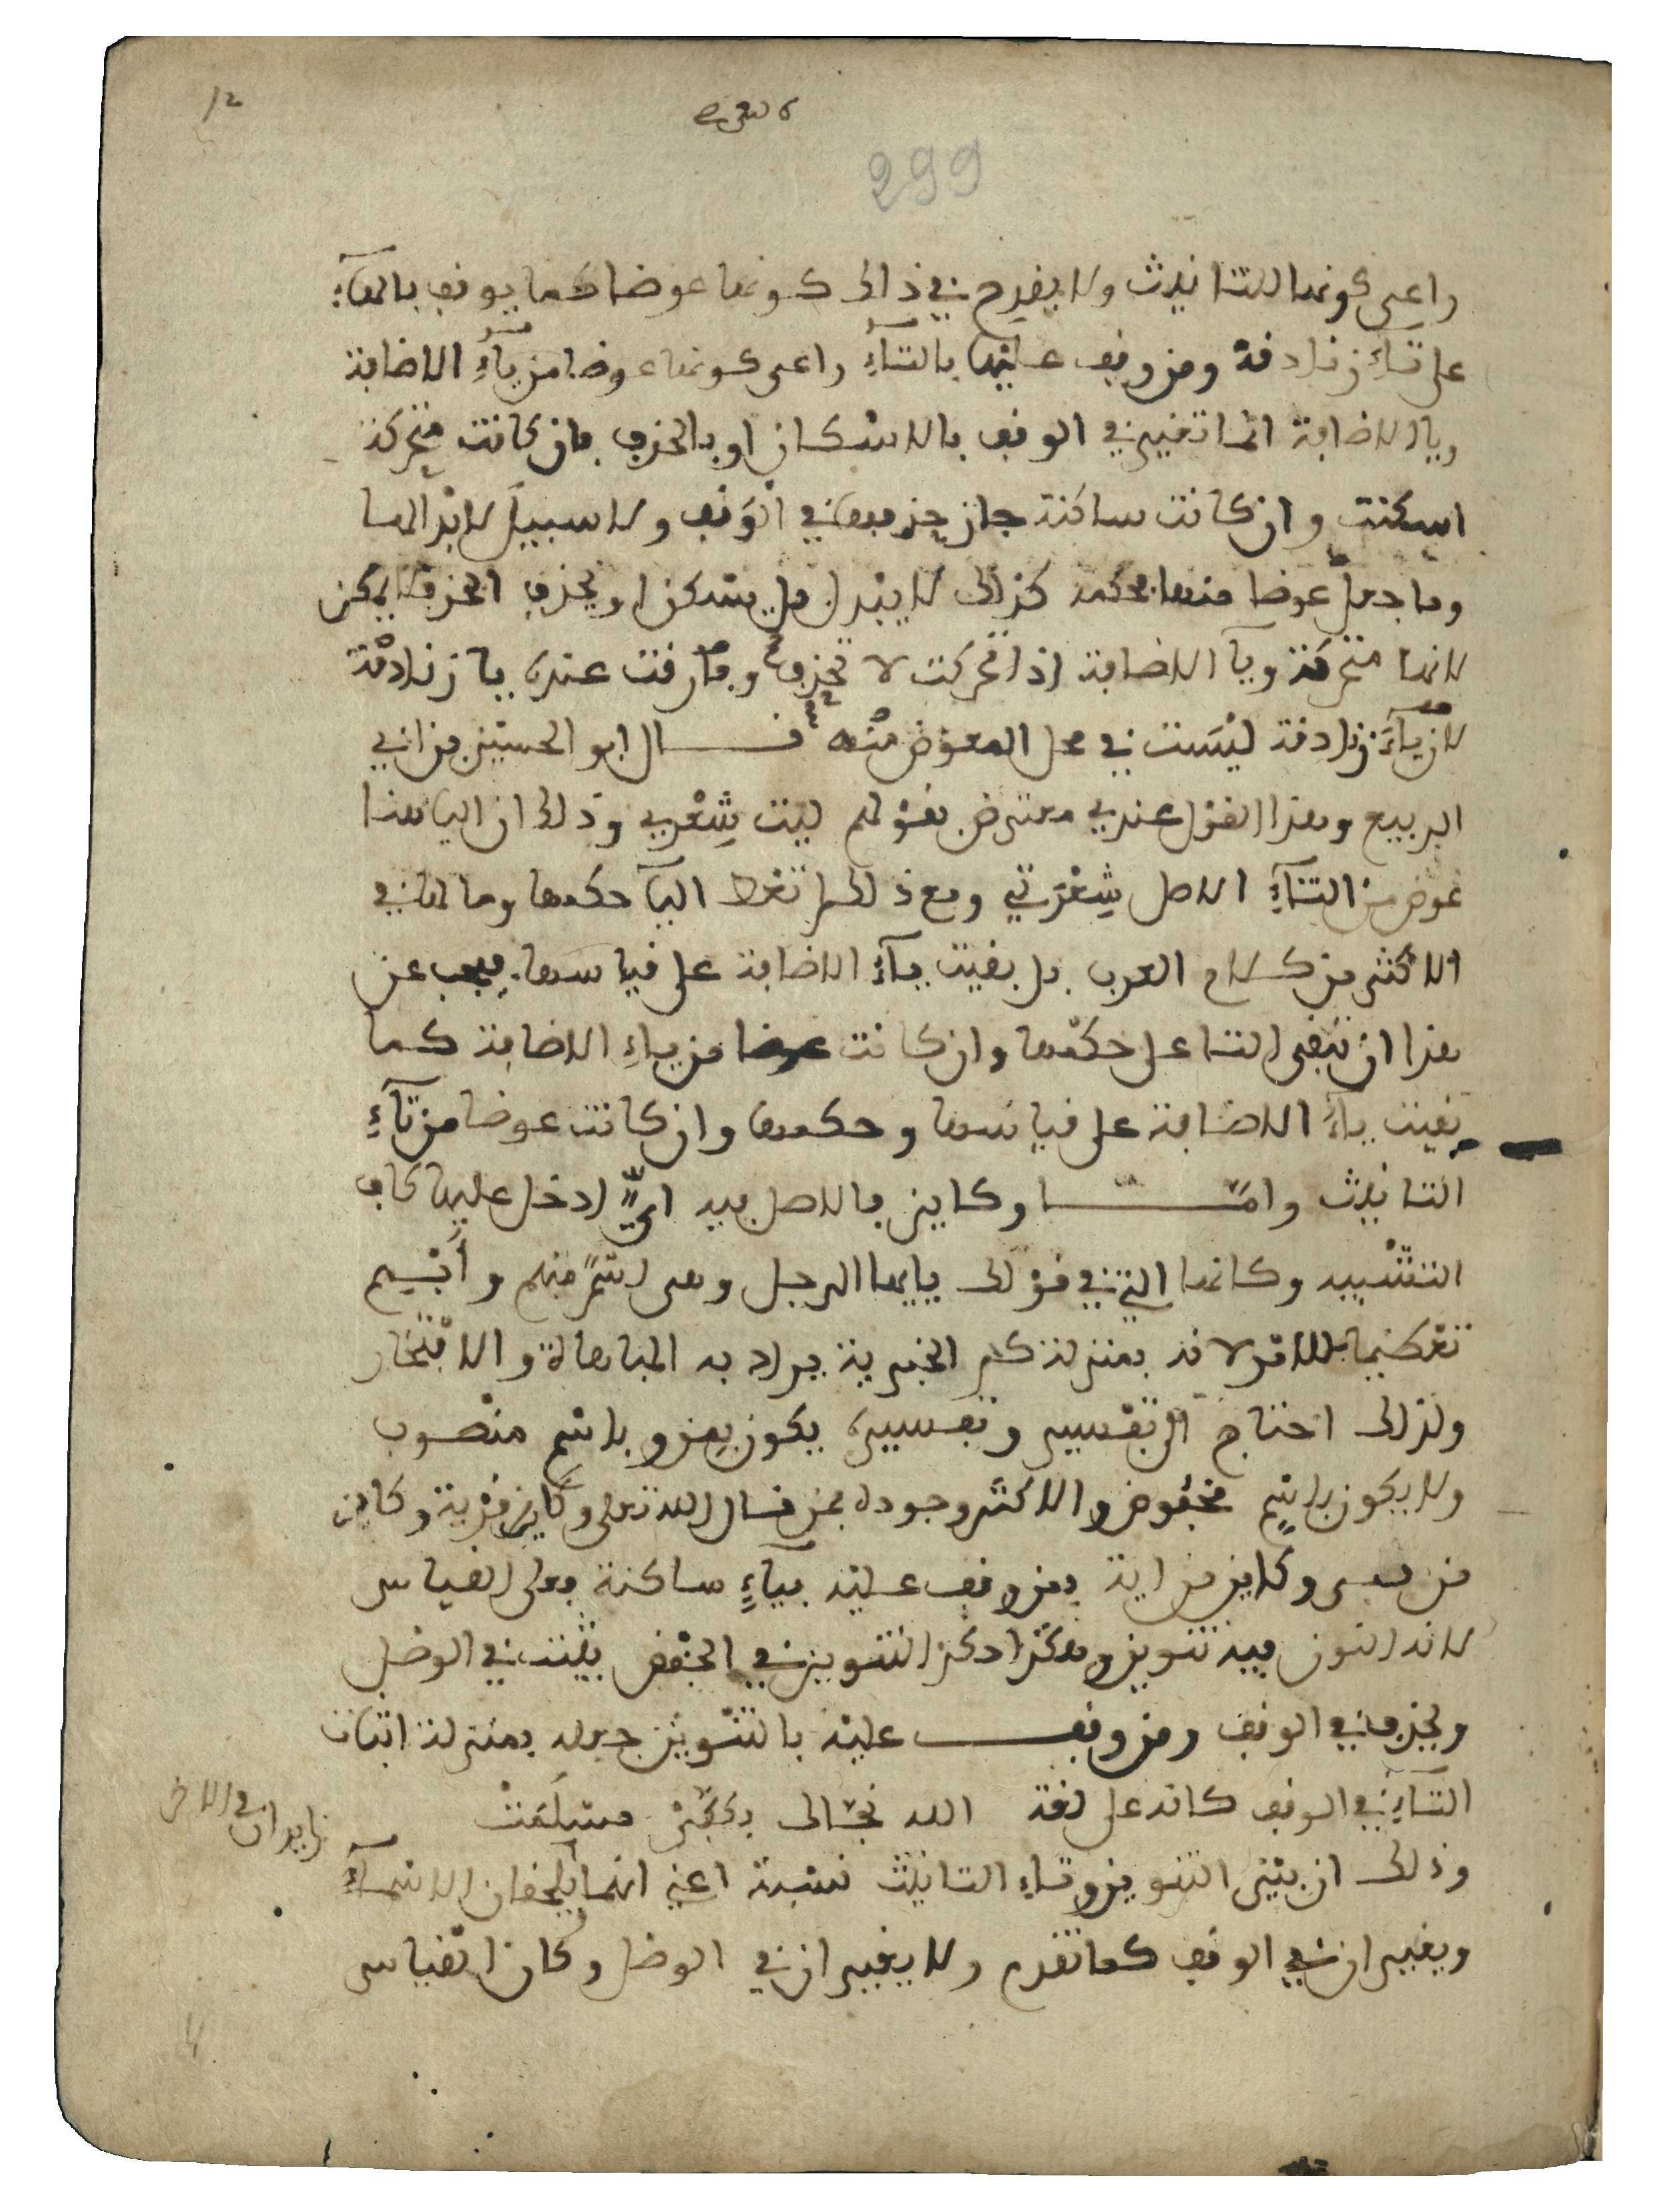 299
راعى كونها للتانيث ولا يقدح في ذلك كونها عوضا كما يوقف بالهاء
على تاء زنادقة ومن وقف عليها بالتاء راعى كونها عوضا من ياء الاضافة
ويا الاضافة انما تغير في الوقف بالاسكان او بالحذف فان كانت متحركة
اسكنت وان كانت ساكنة جاز حذفها في الوقف ولا سبيل لابدالها
وما جعل عوضا منها بحكمه كذلك لا يبدل بل يسكن او يحذف الحذف لا يمكن
لانها متحركة ويا الاضافة اذا تحركت لا تحذف وفارقت عنده يا زنادقة
لان ياء زنادقة ليست في محل المعوض منه قال ابو الحسين بن ابي
الربيع وهذا القول عندي معترض بقولهم ليت شعري وذلك ان اليا هنا
عوض من التاء الاصل شعرتي ومع ذلك لم تعط اليا حكمها وما لها في
الاكثر من كلام العرب بل بقيت ياء الاضافة على قياسها فيجب عن
هذا ان تبقى التا على حكمها وان كانت عوضا من ياء الاضافة كما
بقيت ياء الاضافة على قياسها وحكمها وان كانت عوضا من تاء
التانيث وامّا وكاين فالاصل فيه ايٍّ ادخل عليها كاف
التشبيه وكانها التي في قولك يايها الرجل وهى اسم مبهم وابهم
تعظيما للامر لانه بمنزلة كم الخبرية يراد به المباهاة والافتخار
ولذلك احتاج الى تفسير وتفسيره يكون بمن وباسم منصوب
ولا يكون باسم مخفوض والاكثر وجوده بمن قال الله تعلى وكاين من قرية وكاين
من نبى وكاين من اية فمن وقف عليه بياء ساكنة فعلى القياس
لانه النون فيه تنوين وهكذا حكم التنوين في الخفض يثبت في الوصل
ويحذف في الوقف ومن وقف عليه بالتنوين جعله بمنزلة اثبات
التاء في الوقف كانه على لغة الله نجاك بكفى مسلمت
وذلك ان بين التنوين وتاء التانيث نسبة اعني انهما يلحقان الاسماء
ويغيران في الوقف كما تقدم ولا يغيران في الوصل وكان القياس